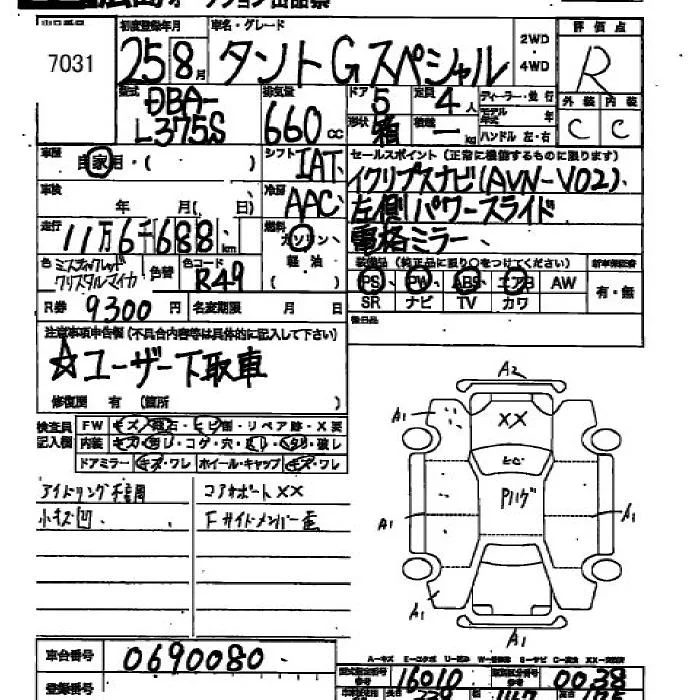 オークション出品票
出品番号 初度登録年月 車名・グレード 2WD・4WD 評価点
7031 25 8月 タントGスペシャル R
型式 DBA-L375S 排気量 660cc ドア 5 定員 4人 ディーラー・並行 外装 内装
形状 箱 積載 ー kg モデル年式 年 ハンドル 左・右 C C
車歴 自家用・( ) シフト IAT セールスポイント(正常に機能するものに限ります)
車検 年 月( 日) 冷房 AAC イクリプスナビ(AVN-V02)、
走行 11万6千688km 燃料 ガソリン、 左側パワースライド
軽油 ( ) 電格ミラー
色 ミスティックレッドクリスタルマイカ 色替 色コード R49 装備品(純正品に限り○をつけてください) 新車保証書
PS、PW、ABS、エアB AW 有・無
R券 9300円 名変期限 月 日 SR ナビ TV カワ
後日品
注意事項申告欄(不具合内容等は具体的に記入して下さい)
☆ユーザー下取車
修復歴 有(箇所 )
検査員記入欄 FW キズ・飛石・ヒビ割・リペア跡・X要
内装 キズ・汚レ・コゲ・穴・ヘタリ・破レ
ドアミラー キズ・ワレ ホイール・キャップ キズ・ワレ
アイドリング不調 コアサポートXX
小キズ凹、 Fサイドメンバー歪
A2
A1
XX
ヒビ
Pハゲ
A1
A1
A1
A1
車台番号 0690080
登録番号
A-キズ
16010 0038